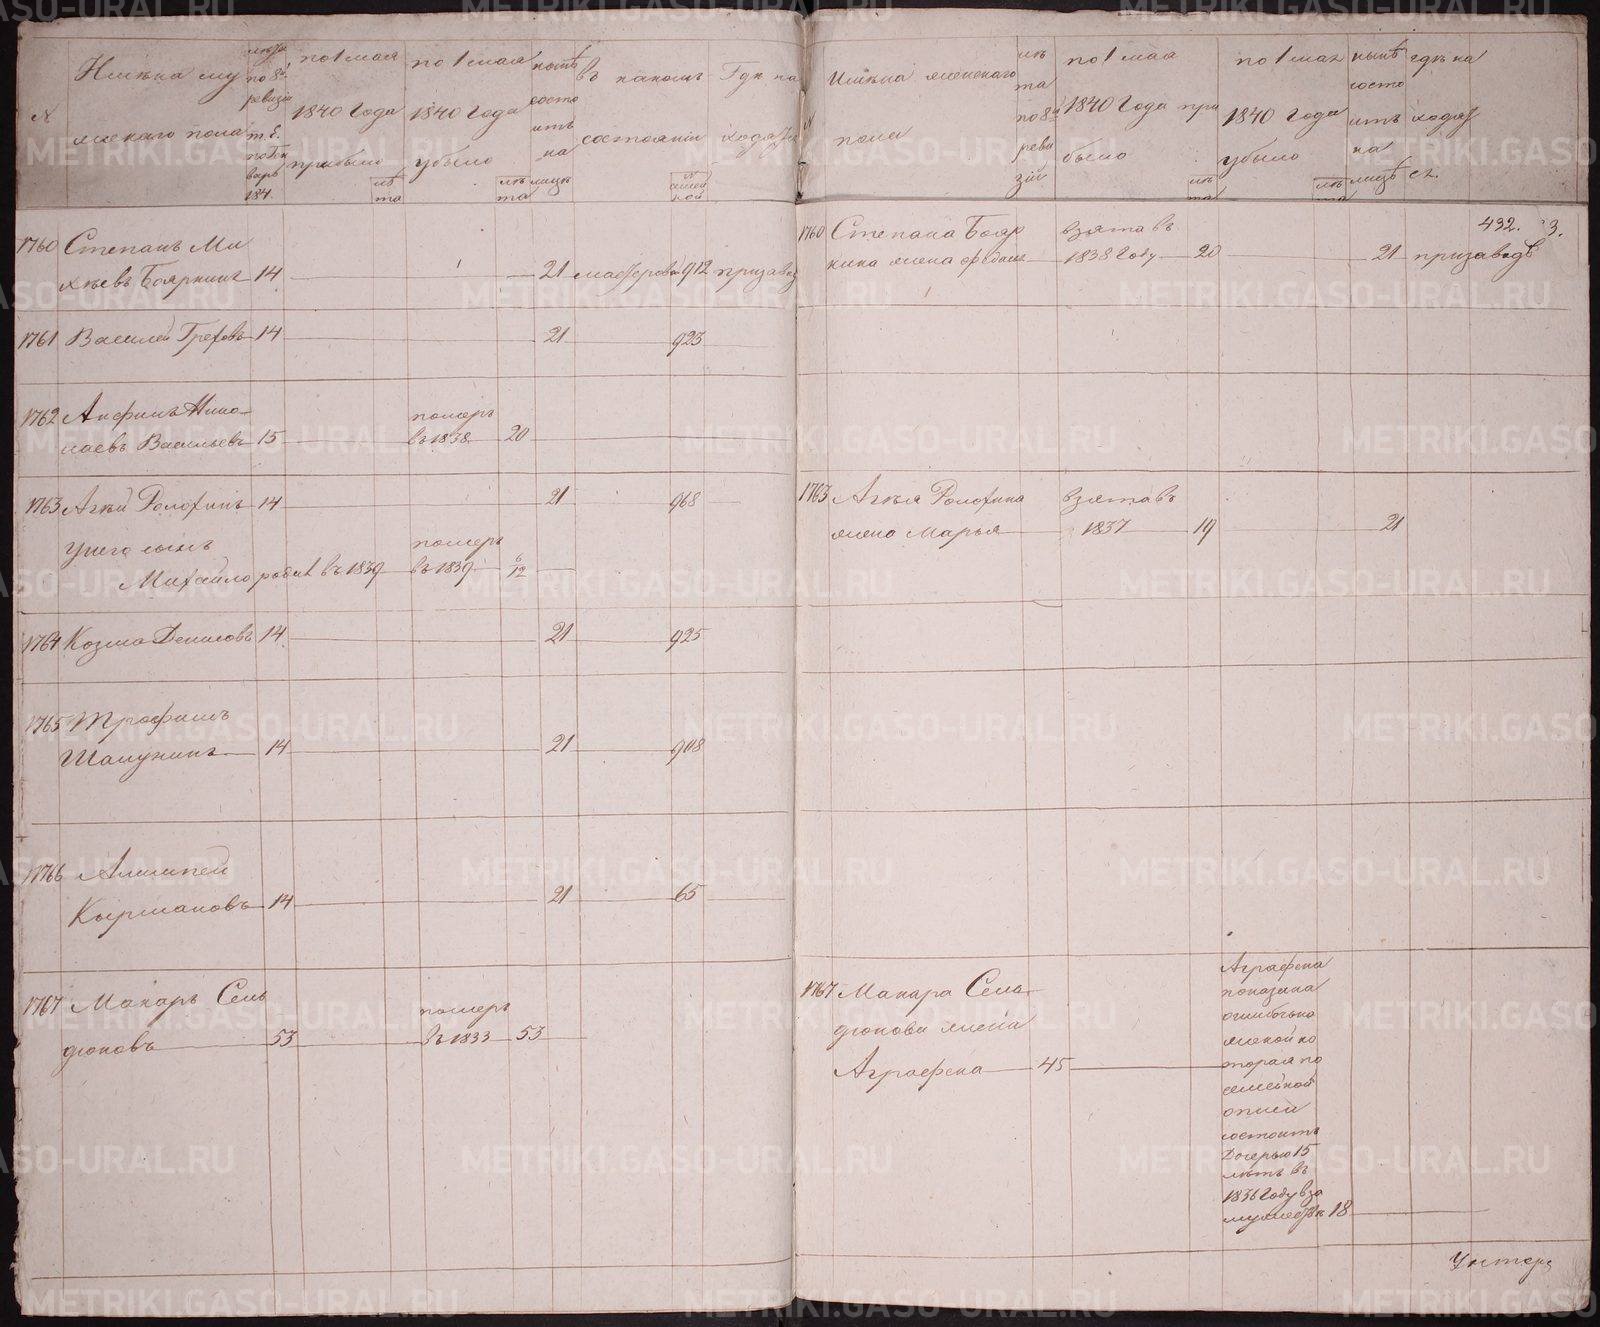 №
Имѣна му
жескаго пола
по 8й
ревизіи
по 1 мая
1840 года
прибыло
лѣ
та
по 1 мая
1840 года
убыло
лѣ
та
нынѣ
состо
итъ
на
лицѣ
въ какомъ
состояніи
Гдѣ на
1760 Степанъ Ми
хѣевъ Бояркинъ 14 21 мастеровой 912 при завод
1761 Василей Грехов 14 21 923
1762 Анфимъ Нико
лаевъ Васильевъ 15
померъ
въ 1838 20
1763 Агѣй Волохинъ 14 21 968
у него сынъ
Михайло родил въ 1839
померъ
въ 1839 6/12
1764 Козма Денисовъ 14 21 925
1765 Трофимъ
Шапунинъ 14 21 948
1766 Алексѣй
Кырмановъ 14 21 65
1767 Макаръ Сель
дюковъ 53
померъ
въ 1833 53
Имѣна женскаго
пола
лѣ
та
по 8й
реви
зій
по 1 мая
1840 года при
было
лѣ
та
по 1 мая
1840 года
убыло
лѣ
та
нынѣ
состо
итъ
на
лицѣ
гдѣ на
ходят
ся.
432. 3.
1760 Степана Бояр
кина жена Федосья
взята въ
1838 году 20 21 при заводѣ
1763 Агѣя Волохина
жена Марья
взята въ
1837 19 21
1767 Макара Сель
дюкова жена
Аграфена 45
Аграфена
показана
ошибочно
женой ко
торая по
семейной
описи
состоитъ
Дочерью 15
лѣтъ въ
1836 году в за
мужество 18
Унтеръ